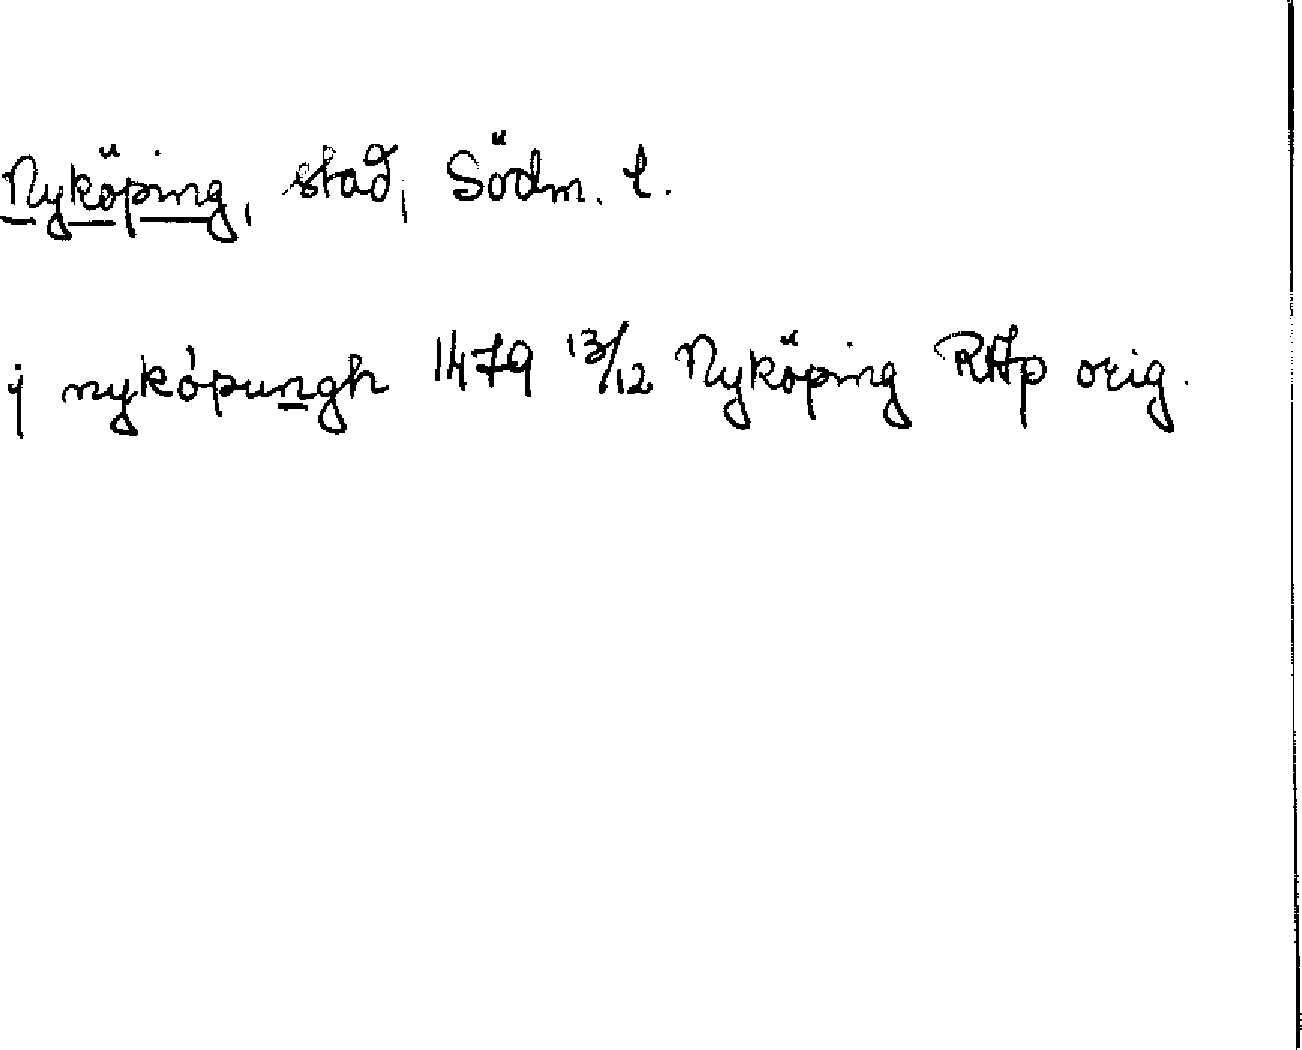 Nyköping, stad, Södm. l.
j nykópungh 1479 13/12 Nyköping RAp orig.